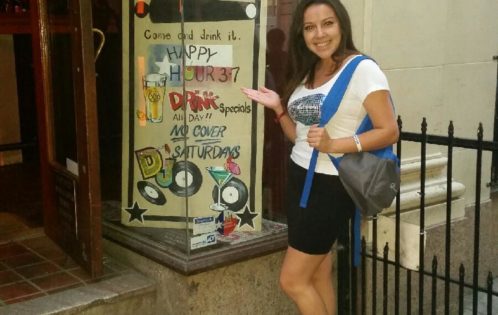 Come and drink it.
HAPPY
HOUR 3-7
DRINK specials
All DAY!!
NO COVER
SATURDAYS
DJ's